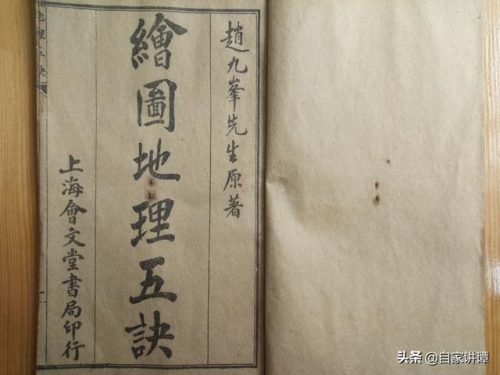 趙九峯先生原著
繪圖地理五訣
上海會文堂書局印行
头条 @自家讲谭